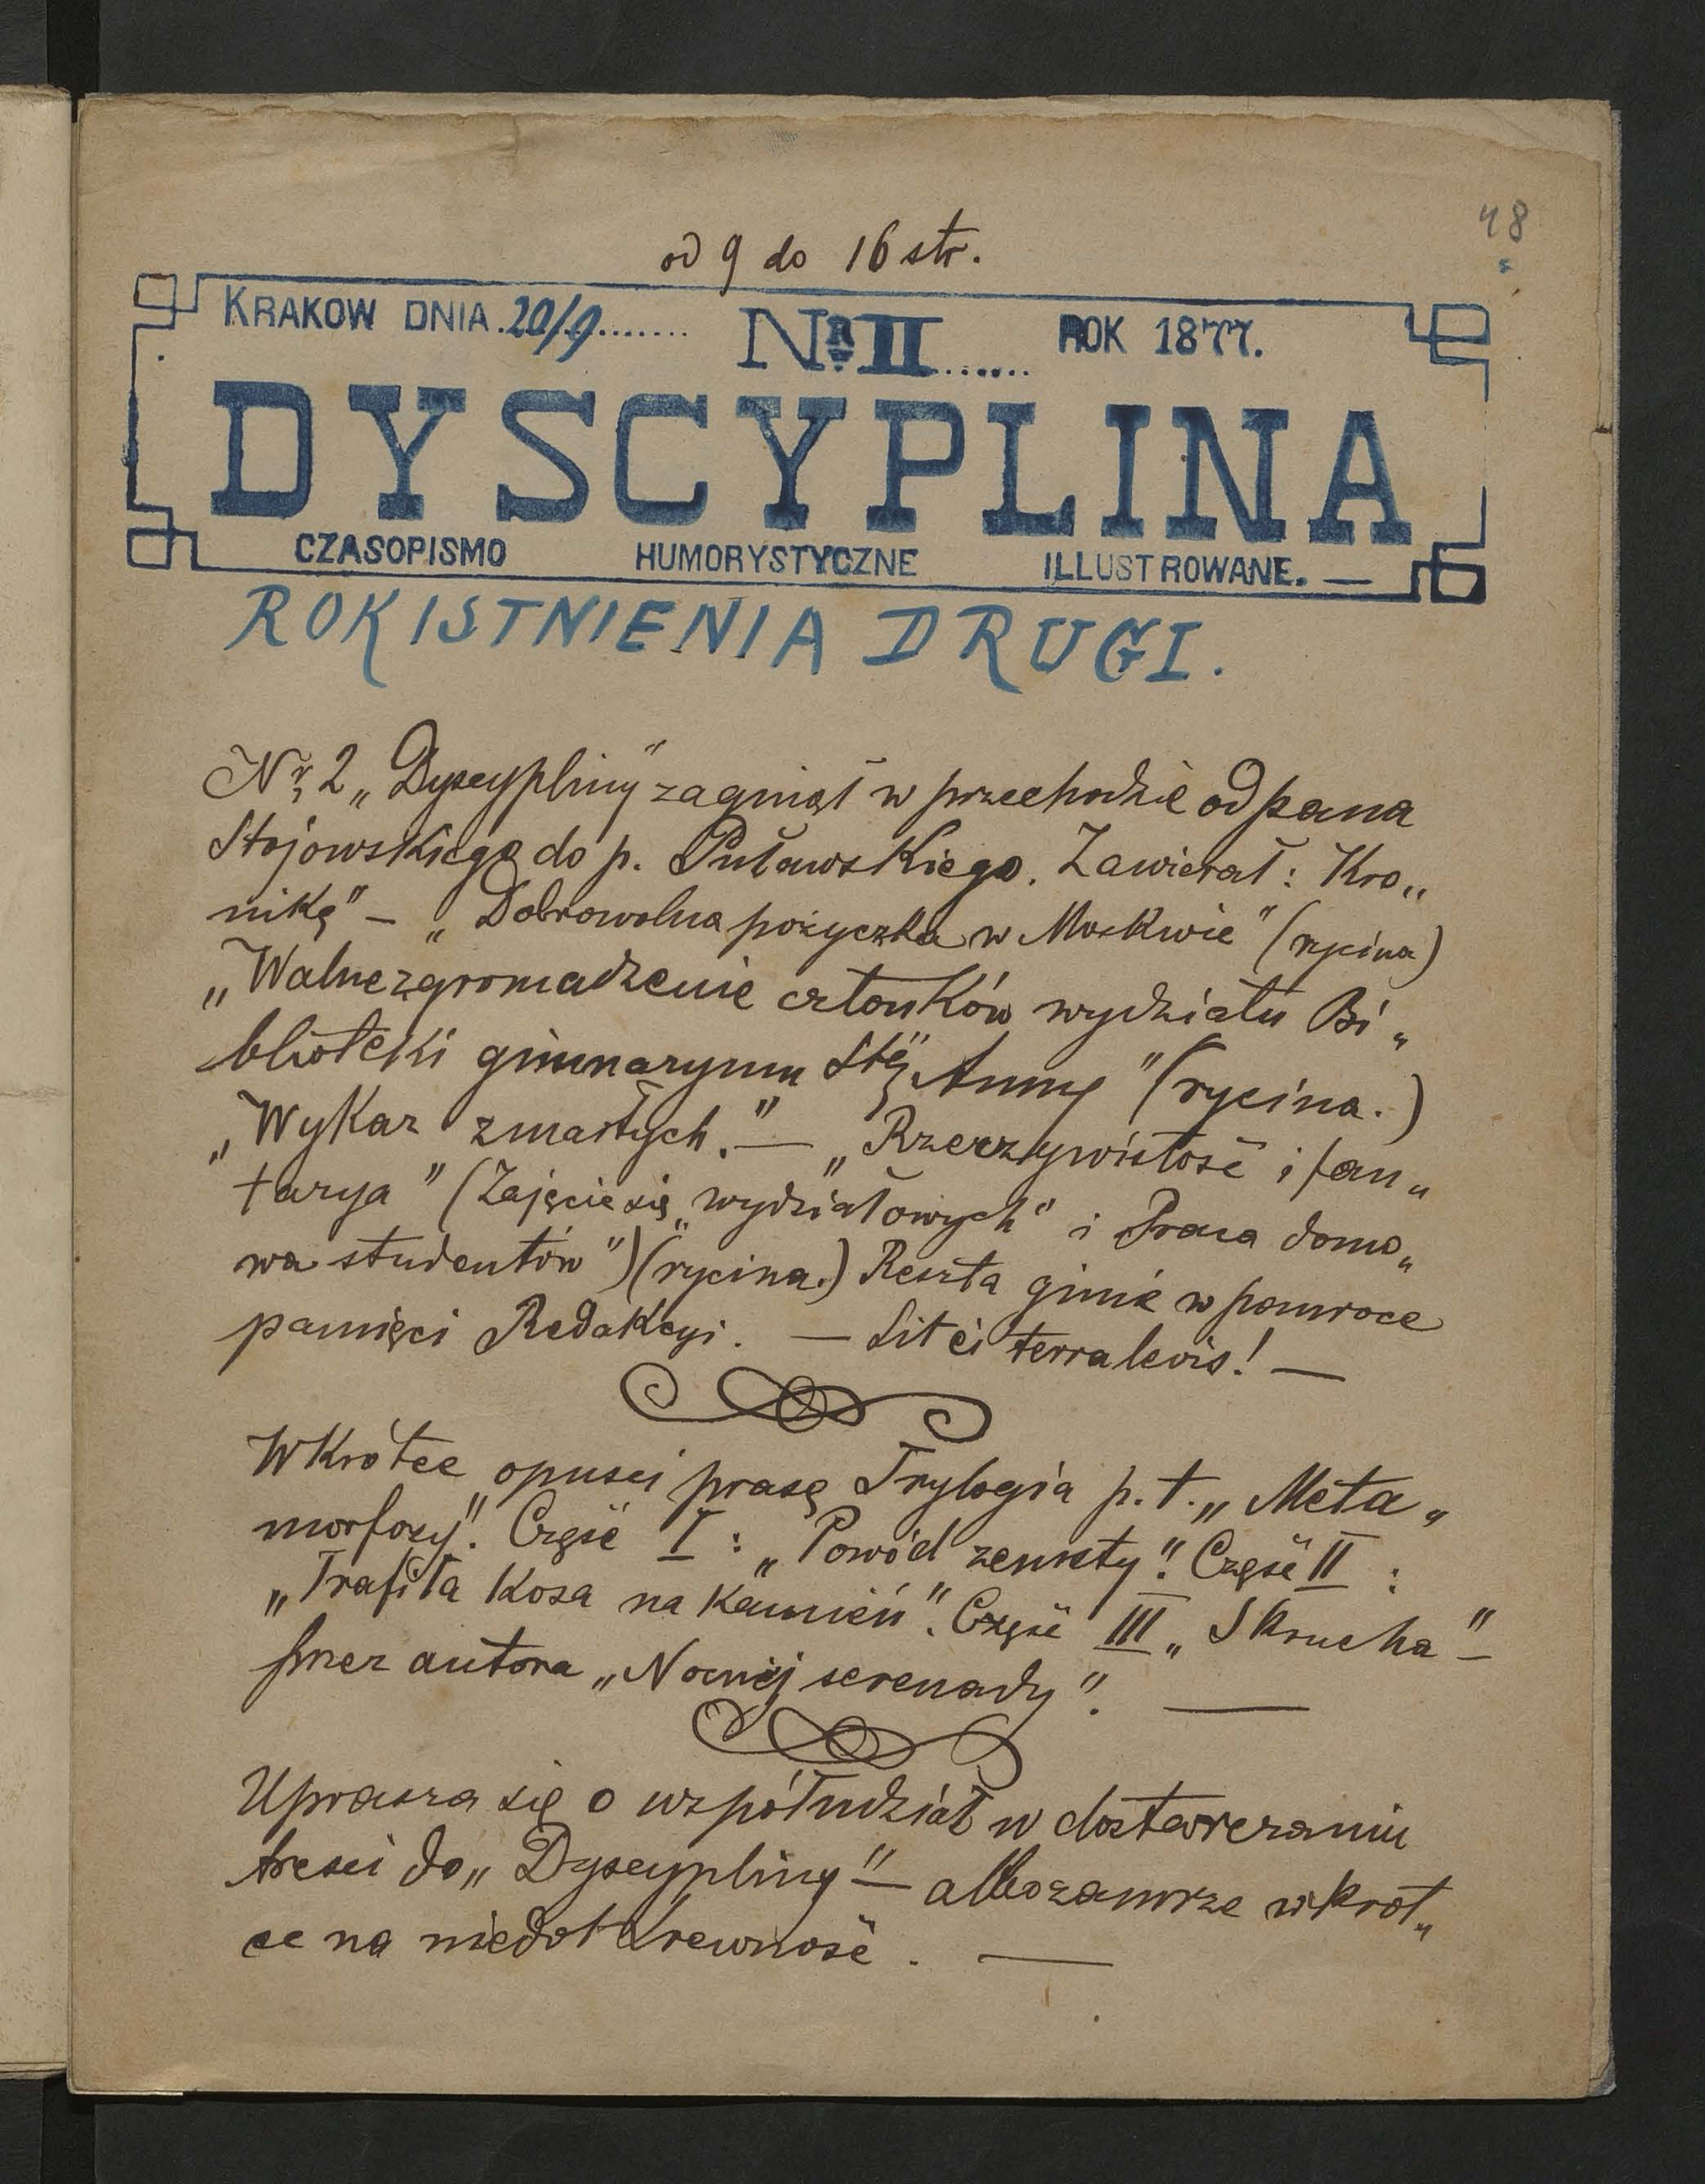 48
od 9 do 16 str.
KRAKOW DNIA 20/9 NR II ROK 1877.
DYSCYPLINA
CZASOPISMO HUMORYSTYCZNE ILLUSTROWANE. —
ROK ISTNIENIA DRUGI.
Nr 2 „Dyscypliny" zaginął w przechodzie od pana
Stojowskiego do p. Puławskiego. Zawierał: Kro„
nikę" — „Dobrowolna pożyczka w Moskwie" (rycina)
„Walne zgromadzenie członków wydziału Bi„
blioteki gimnazyum Stej Anny" (rycina.)
„Wykaz zmarłych." — „Rzeczywistość i fan„
tazya" (Zajęcie się „wydziałowych" i Praca domo„
wa studentów") (rycina.) Reszta ginie w pomroce
pamięci Redakcyi. — Sit ei terra levis! —
Wkrótce opuści prasę Trylogia p.t. „Meta„
morfozy". Część I: „Powód zemsty". Część II:
„Trafiła Kosa na Kamień". Część III „Skrucha" —
przez autora „Nocnej serenady". —
Uprasza się o współudział w dostarczaniu
treści do „Dyscypliny" — albo zamrze wkrót„
ce na niedokrewność. —